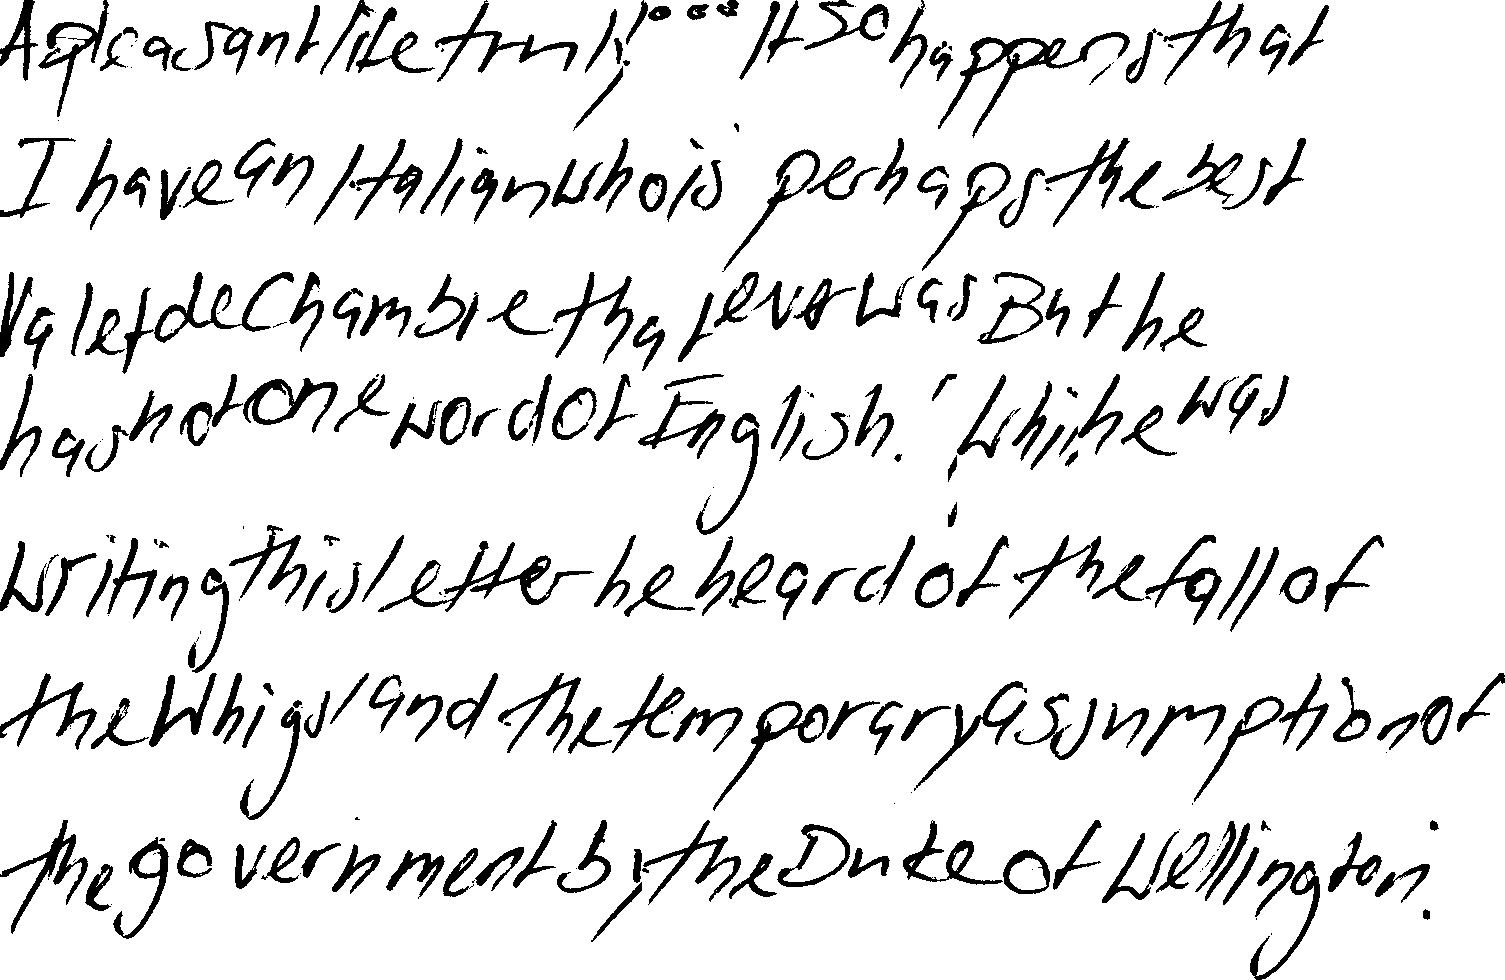 A pleasant life truly!... It so happens that
I have an Italian who is perhaps the best
Valet de Chambre that ever was But he
has not one word of English.' Whilhe was
writing this letter he heard of the fall of
the Whigs/and the temporary assumption of
the government by the Duke of Wellington.